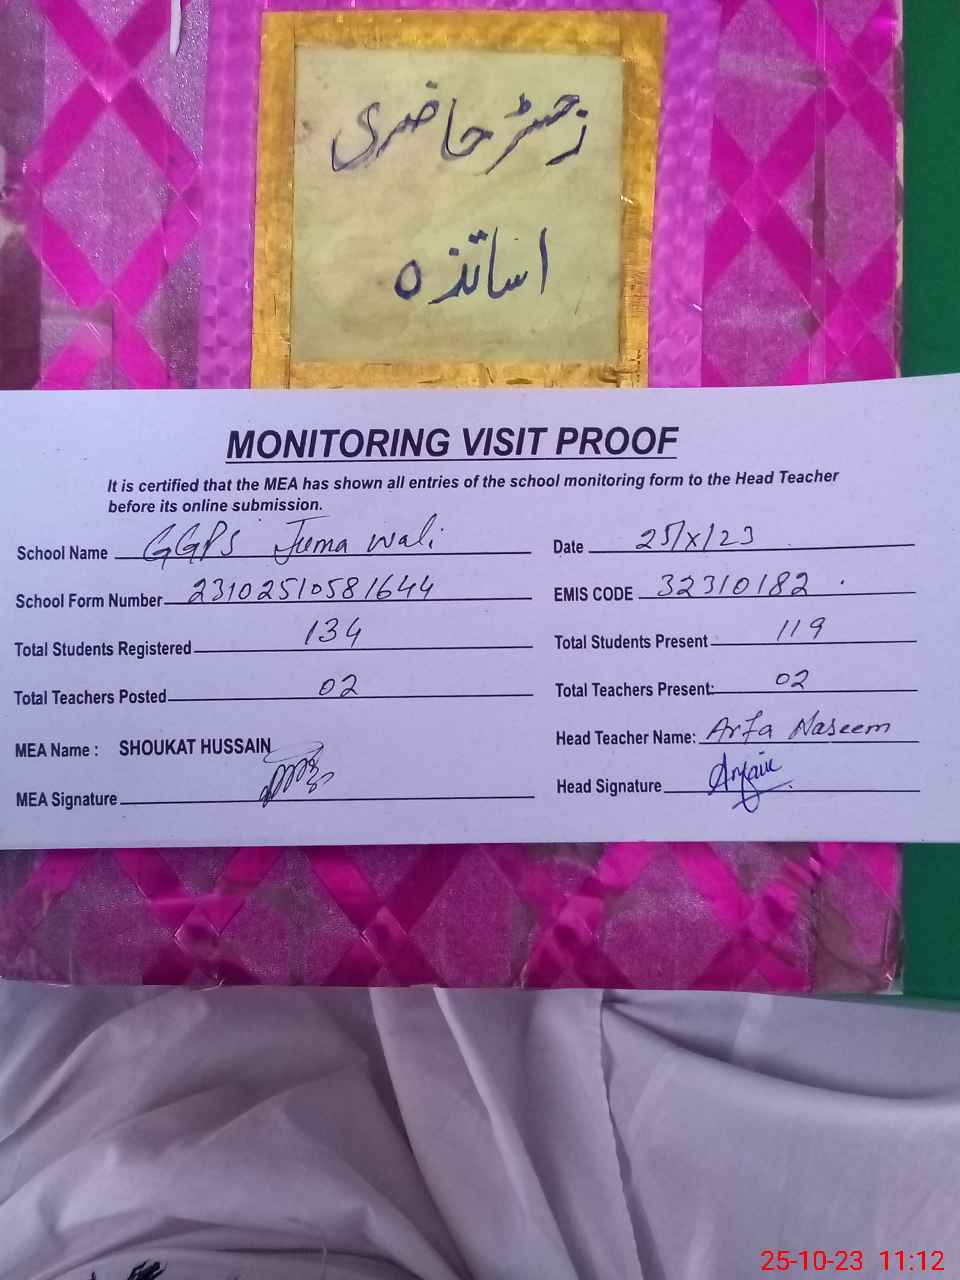 رجسٹر حاضری
اساتذہ
MONITORING VISIT PROOF
It is certified that the MEA has shown all entries of the school monitoring form to the Head Teacher
before its online submission.
School Name GGPS Juma Wali Date 25/X/23
School Form Number 23102510581644 EMIS CODE 32310182
Total Students Registered 134 Total Students Present 119
Total Teachers Posted 02 Total Teachers Present: 02
MEA Name : SHOUKAT HUSSAIN Head Teacher Name: Arfa Naseem
MEA Signature Head Signature
25-10-23 11:12